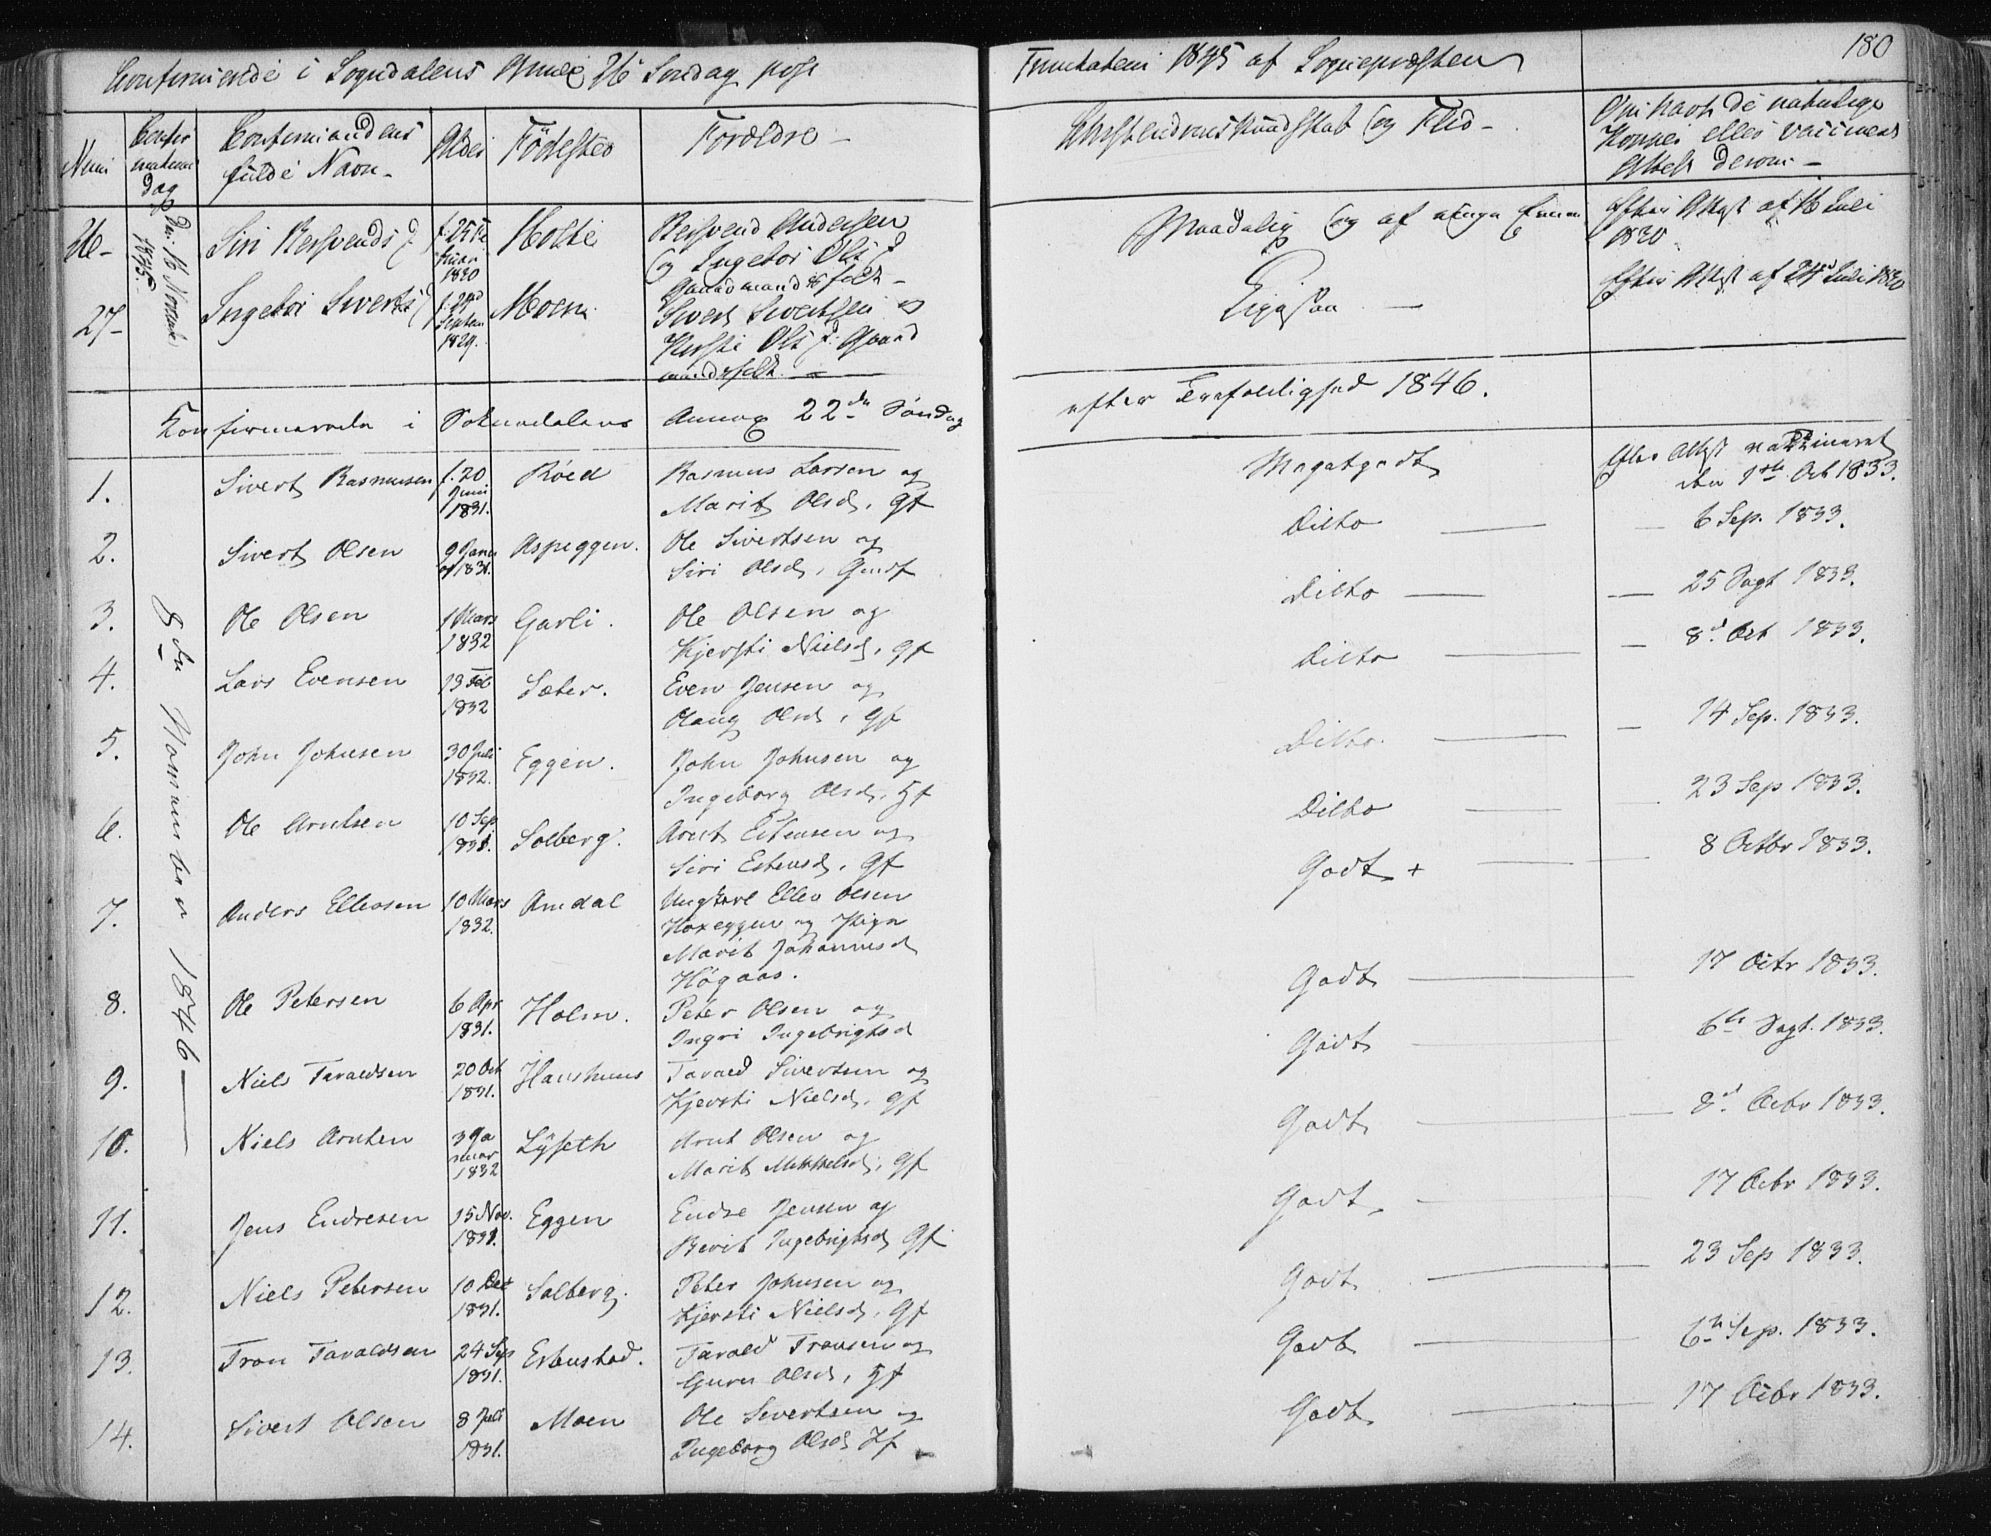 180
Confirmerede i Sogndalens Annex 26 Søndag post
Trinitatem 1845 af Sognepræsten
Num
Confirmations Dag
Confirmandens fulde Navn
Alder
Fødested
Forældre
Christendomskundskab og Flid
Om havt de naturlige Kopper eller vaccineret Attest derom
26
Den 16 Novemb 1845.
Siri Bersvends d
f. 25 Januar 1830
Holte
Bersvend Andersen
og Ingebor Ols d
Gaardmandsfolk
Maadelig og af ringe Evner
Efter Attest af 16 Juli 1830
27
Ingebor Siverts d
f. 29 Septem 1829.
Moen
Sivert Sivertsen og
Kersti Ols d. Gaard
mandsfolk
Ligesaa
Efter Attest af 24 Juli 1830
Konfirmerede i Soknedalens Annex 22de Søndag
efter Trefoldighed 1846.
8de November 1846
1.
Sivert Rasmusen
f. 20 Juni 1831.
Röed
Rasmus Larsen og
Marit Olsd. gf
Megetgodt
Efter Attest vaccineret
den 9de Oct 1833.
2.
Sivert Olsen
9 Janu 1831.
Aspeggen.
Ole Sivertsen og
Siri Olsd. Gmdf
Ditto
6 Sep. 1833.
3.
Ole Olsen
1 Mars 1832
Garli.
Ole Olsen og
Kjersti Nielsd. gf
Ditto
25 Sept 1833.
4.
Lars Evensen
13 Feb 1832
Sæter.
Even Jensen og
Olaug Olsd. gf
Ditto
8d Oct 1833.
5.
John Johnsen
30 Juli 1832.
Eggen.
John Johnsen og
Ingeborg Olsd. gf
Ditto
14 Sep. 1833.
6.
Ole Arntsen
10 Sep 1831.
Solberg.
Arnt Estensen og
Siri Estensd. gf
Ditto
23 Sep 1833.
7.
Anders Ellevsen
10 Mars 1832.
Amdal
Ungkarl Ellev Olsen
Hoxeggen og Pige
Marit Johannesd
Högaas.
Godt +
8 Octbr 1833.
8.
Ole Petersen
6 Apr 1831.
Holm.
Peter Olsen og
Ingri Ingebrigtsd
Godt
17 Octr 1833.
9.
Niels Taraldsen
20 Oct 1831.
Haushuus
Tarald Sivertsen og
Kjersti Nielsd. gf
Godt
6te Sept. 1833.
10.
Niels Arntsen
3 Januar 1832
Lyseth
Arnt Olsen og
Marit Mikkelsd. gf
Godt
8d Octbr 1833.
11.
Jens Endresen
15 Nov. 1831.
Eggen
Endre Jensen og
Berit Ingebrigtsd gf
Godt
17 Octbr 1833.
12.
Niels Petersen
10 Dec 1831.
Solberg
Peter Johnsen og
Kjersti Nielsd. gf
Godt
23 Sep 1833.
13.
Tron Taraldsen
24 Sep 1831.
Estenstad.
Tarald Tronsen og
Guru Olsd. gf
Godt
6te Sep. 1833.
14.
Sivert Olsen
8 Juli 1831.
Moen
Ole Sivertsen og
Ingeborg Olsd Hf
Godt
17 Octbr 1833.